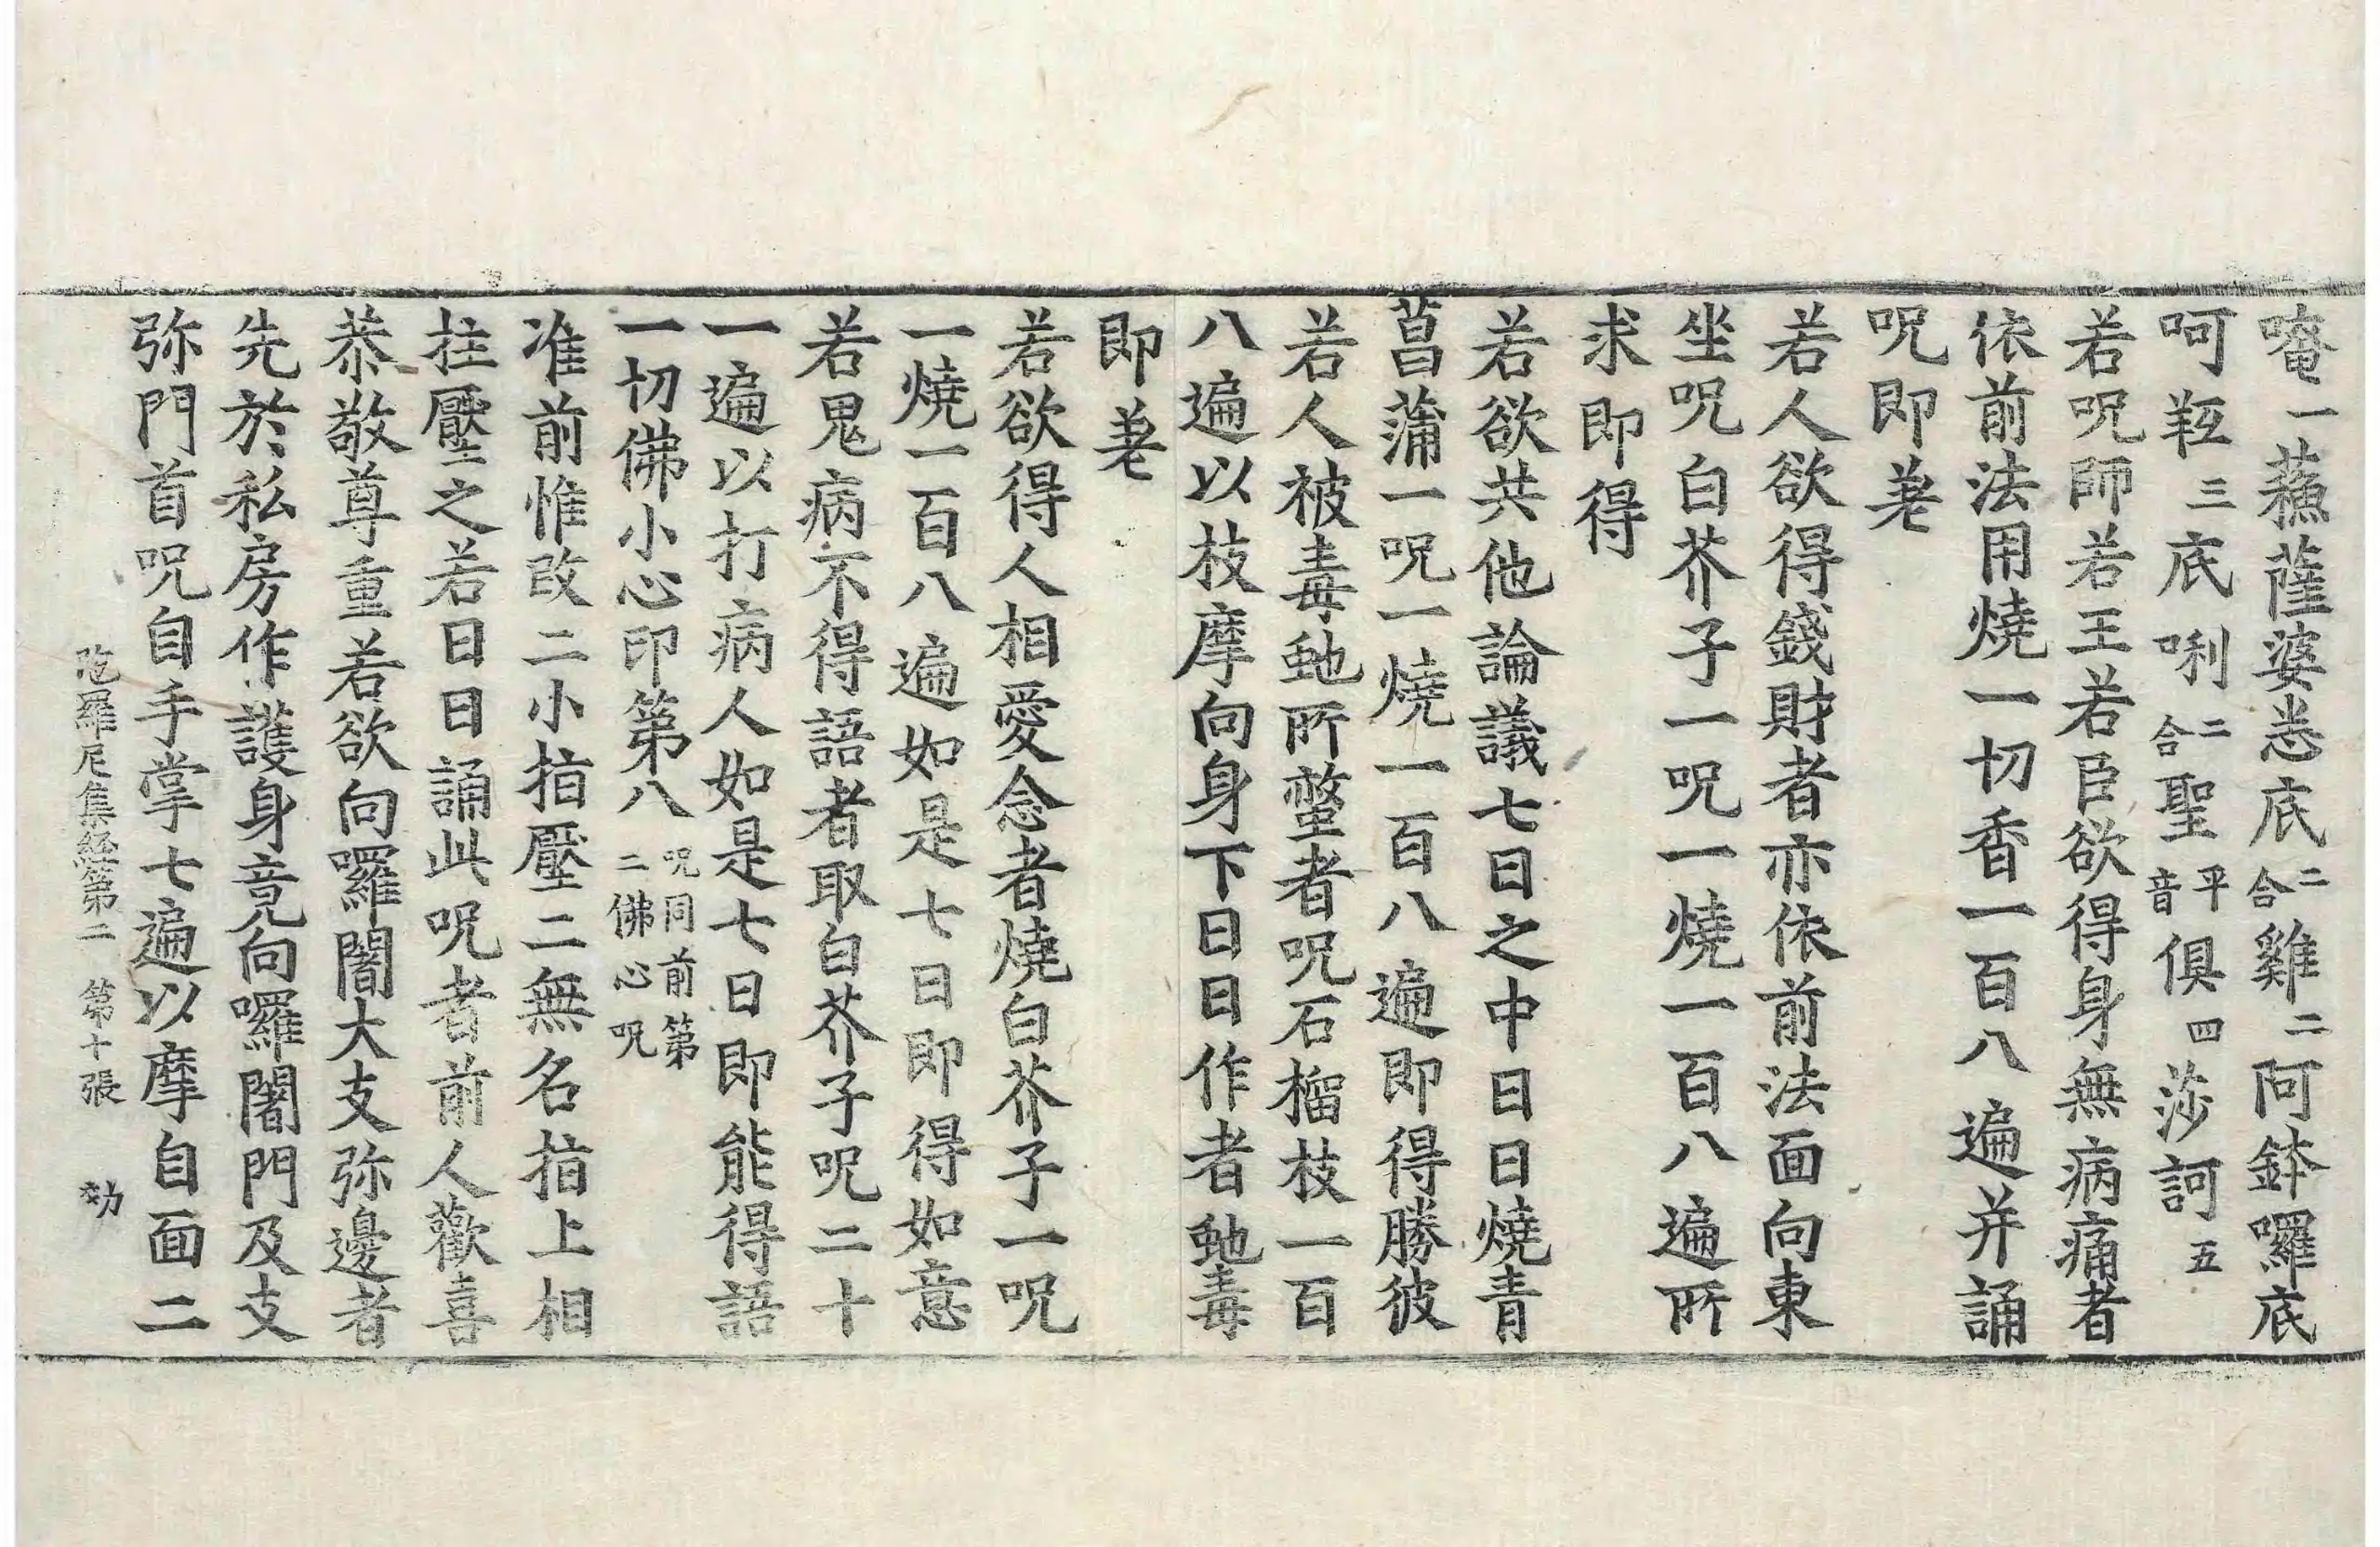 唵一蘓薩婆悉底二合雞二阿鉢囉底
呵羝三底唎二合聖平音俱四莎訶五
若呪師若王若臣欲得身無病痛者
依前法用燒一切香一百八遍并誦
呪即差
若人欲得錢財者亦依前法面向東
坐呪白芥子一呪一燒一百八遍所
求即得
若欲共他論議七日之中日日燒青
菖蒲一呪一燒一百八遍即得勝彼
若人被毒虵所螫者呪石榴枝一百
八遍以枝摩向身下日日作者虵毒
即差
若欲得人相愛念者燒白芥子一呪
一燒一百八遍如是七日即得如意
若鬼病不得語者取白芥子呪二十
一遍以打病人如是七日即能得語
一切佛小心印第八呪同前第二佛心呪
准前惟改二小指壓二無名指上相
拄壓之若日日誦此呪者前人歡喜
恭敬尊重若欲向囉闍大支弥邊者
先於私房作護身竟向囉闍門及支
弥門首呪自手掌七遍以摩自面二
陁羅尼集経第二 第十張 㓛